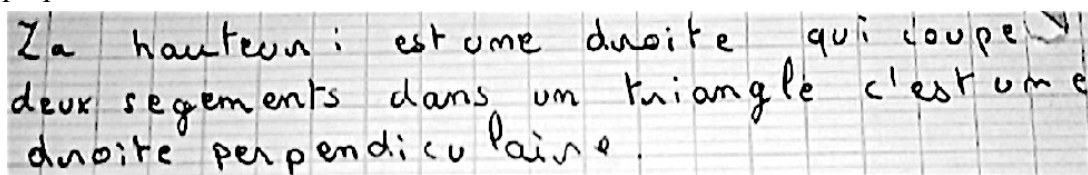 La hauteur : est une droite qui coupe
deux segements dans un triangle c'est une
droite perpendiculaire.